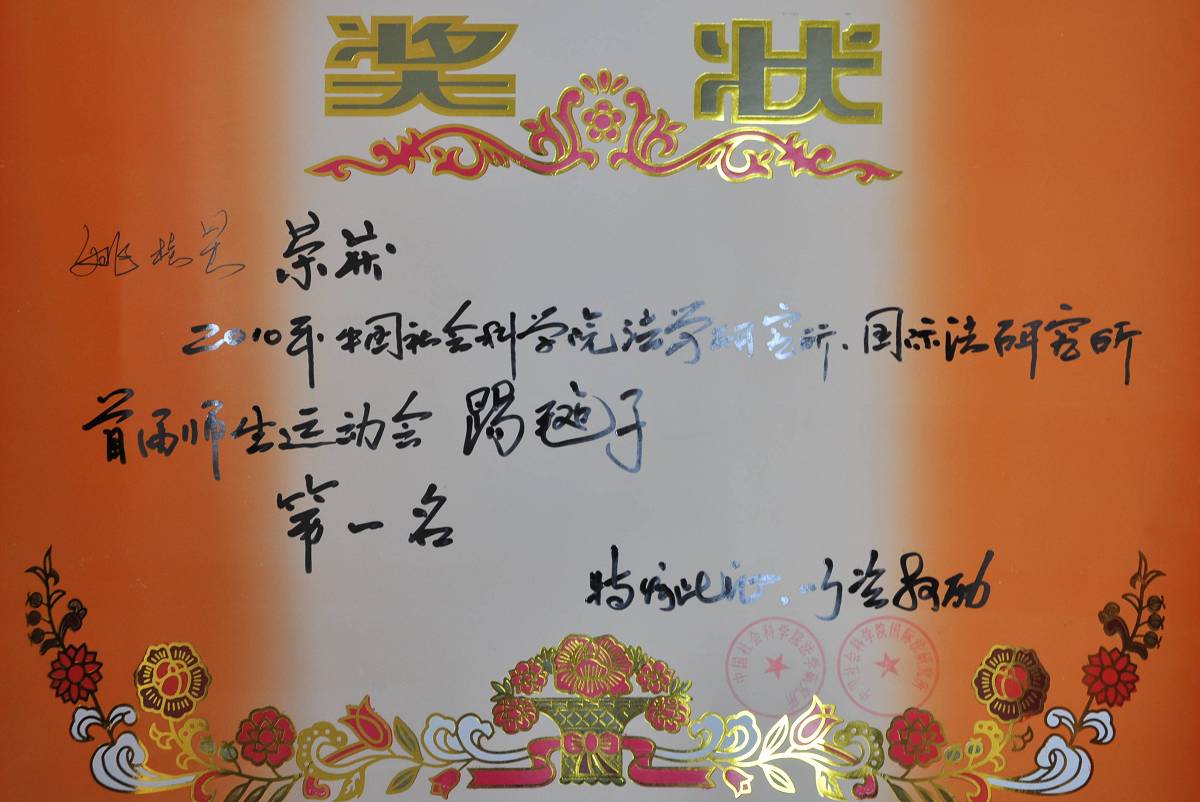 奖状
姚 荣获
2010年中国社会科学院法学研究所、国际法研究所
首届师生运动会踢毽子
第一名
特发此证、以资鼓励
中国社会科学院法学研究所
中国社会科学院国际法研究所